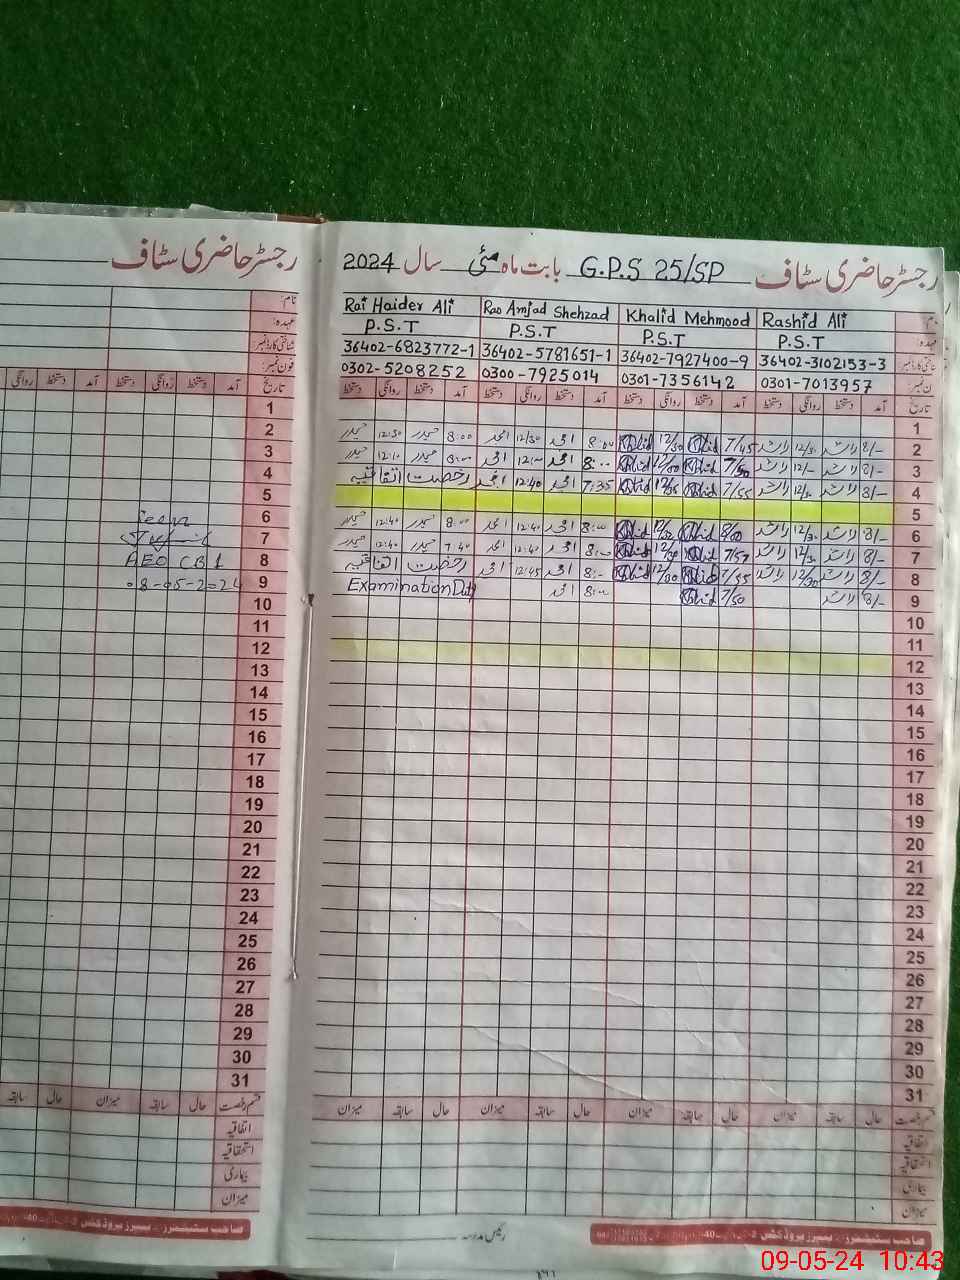 رجسٹر حاضری سٹاف
نام:
عہدہ:
شناختی کارڈ نمبر:
فون نمبر:
تاریخ آمد دستخط روانگی دستخط آمد دستخط روانگی
1
2
3
4
5
6
7
8 AEO CB1
9 08-05-2024
10
11
12
13
14
15
16
17
18
19
20
21
22
23
24
25
26
27
28
29
30
31
قسم رخصت حال سابقہ میزان حال سابقہ
اتفاقیہ
استحقاقیہ
بیماری
میزان
رجسٹر حاضری سٹاف G.P.S 25/SP بابت ماہ مئی سال 2024
Rai Haider Ali Rao Amjad Shehzad Khalid Mehmood Rashid Ali
P.S.T P.S.T P.S.T P.S.T
36402-6823772-1 36402-5781651-1 36402-7927400-9 36402-3102153-3
0302-5208252 0300-7925014 0301-7356142 0301-7013957
تاریخ آمد دستخط روانگی دستخط آمد دستخط روانگی دستخط آمد دستخط روانگی دستخط آمد دستخط روانگی دستخط
1
2 8/- راشد 12/30 راشد 7/45 Khalid 12/30 Khalid 8:00 امجد 12/30 امجد 8:00 حیدر 12:30 حیدر
3 8/- راشد 12/- راشد 7/50 Khalid 12/00 Khalid 8:00 امجد 12:00 امجد 8:00 حیدر 12:10 حیدر
4 8/- راشد 12/30 راشد 7/55 Khalid Khalid 7:35 امجد 12:40 امجد رخصت اتفاقیہ
5
6 8/- راشد 12/30 راشد 8/00 Khalid Khalid 8:00 امجد 12:40 امجد 8:00 حیدر 12:40 حیدر
7 8/- راشد 12/30 راشد 7/57 Khalid Khalid 8:00 امجد 12:40 امجد 7:40 حیدر 12:40 حیدر
8 8/- راشد 12/30 راشد 7/55 Khalid 12/30 Khalid 8:- امجد 12:45 امجد رخصت اتفاقیہ
9 8/- راشد 7/50 Khalid 8:00 امجد Examination Duty
10
11
12
13
14
15
16
17
18
19
20
21
22
23
24
25
26
27
28
29
30
31
قسم رخصت حال سابقہ میزان حال سابقہ میزان حال سابقہ میزان حال سابقہ میزان
اتفاقیہ
استحقاقیہ
بیماری
میزان
رئیس مدرسہ
09-05-24 10:43